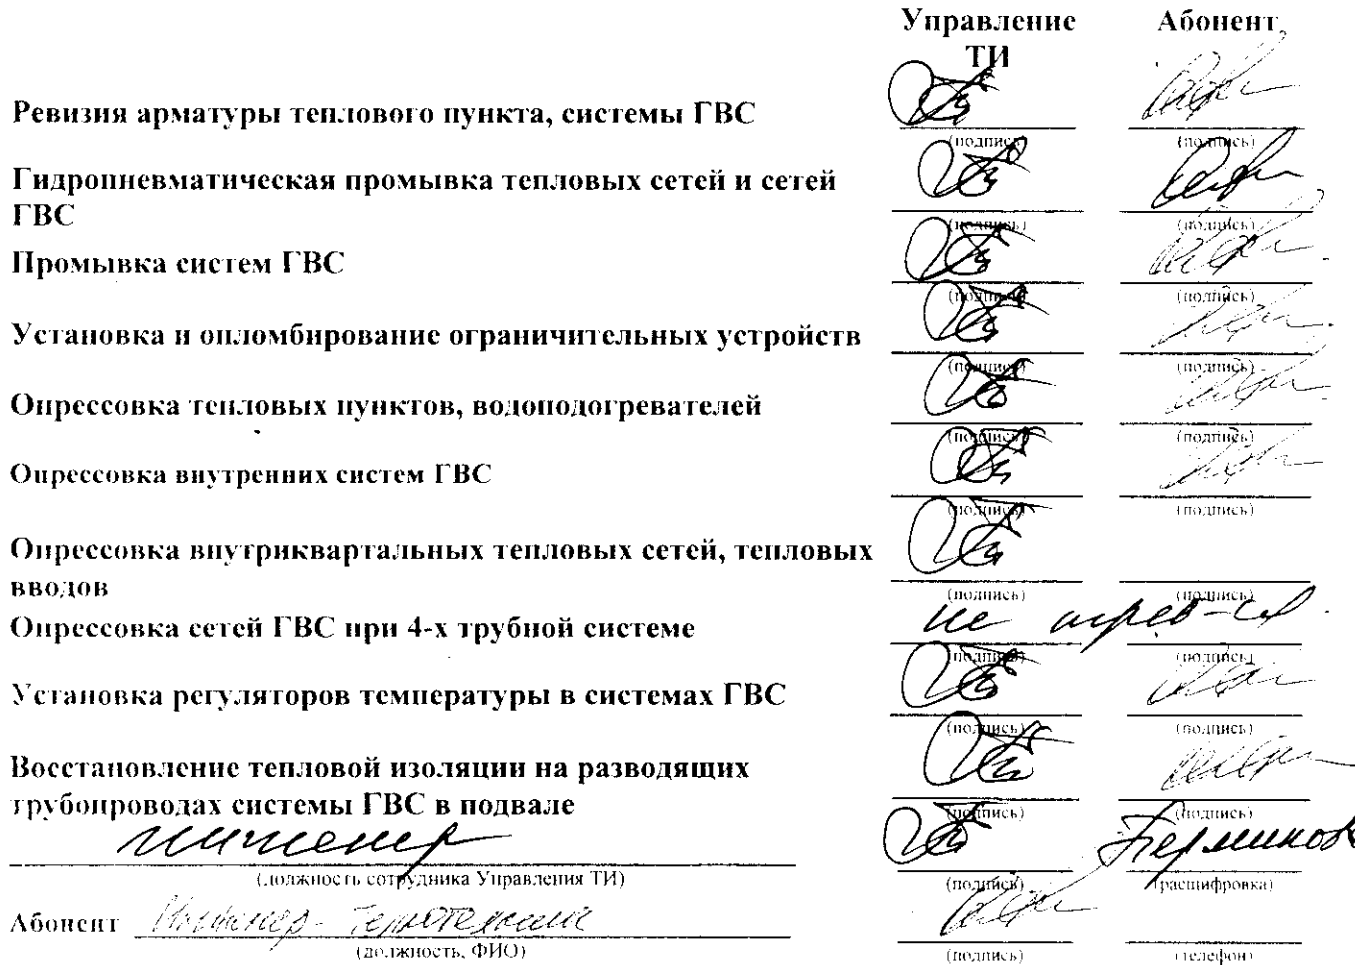 Управление Абонент
ТИ
Ревизия арматуры теплового пункта, системы ГВС
(подпись) (подпись)
Гидропневматическая промывка тепловых сетей и сетей
ГВС
(подпись) (подпись)
Промывка систем ГВС
(подпись) (подпись)
Установка и опломбирование ограничительных устройств
(подпись) (подпись)
Опрессовка тепловых пунктов, водоподогревателей
(подпись) (подпись)
Опрессовка внутренних систем ГВС
(подпись) (подпись)
Опрессовка внутриквартальных тепловых сетей, тепловых
вводов
(подпись) (подпись)
Опрессовка сетей ГВС при 4-х трубной системе не
(подпись) (подпись)
Установка регуляторов температуры в системах ГВС
(подпись) (подпись)
Восстановление тепловой изоляции на разводящих
трубопроводах системы ГВС в подвале
(подпись) (подпись)
инженер
(должность сотрудника Управления ТИ) (подпись) (расшифровка)
Абонент Инженер-
(должность, ФИО) (подпись) (телефон)